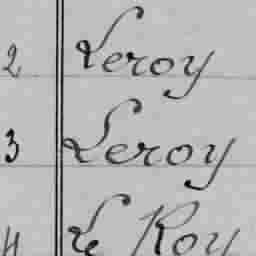 2 Leroy
3 Leroy
4 Le Roy